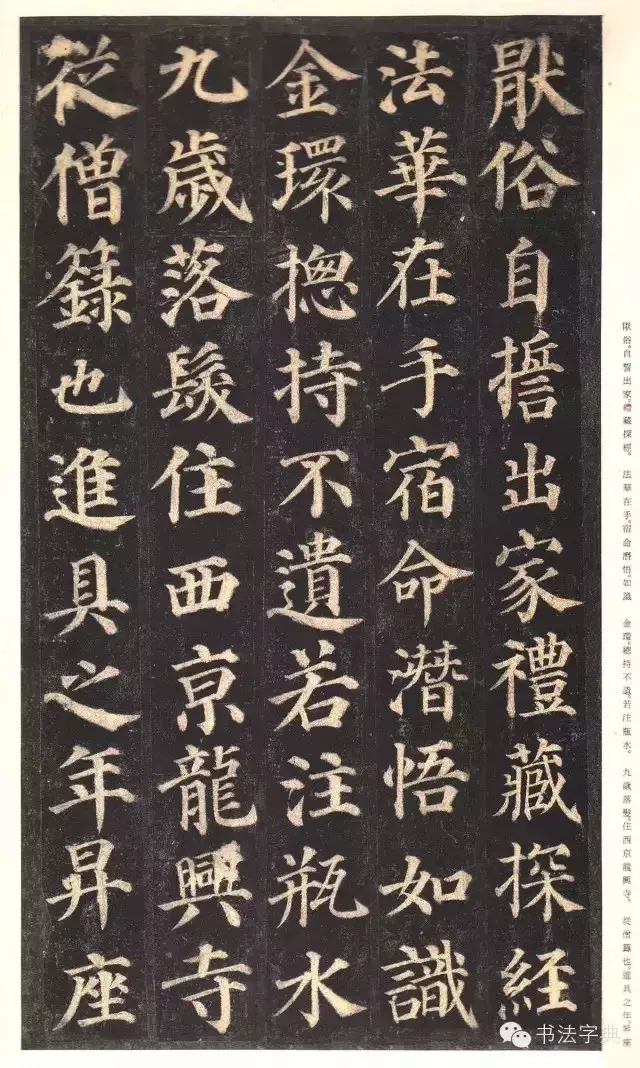 猒俗自誓出家禮藏探経
法華在手宿命潛悟如識
金環揔持不遺若注瓶水
九歲落髮住西京龍興寺
從僧籙也進具之年昇座
猒俗。自誓出家。禮藏探經。 法華在手。宿命潛悟。如識 金環。總持不遺。若注瓶水。 九歲落髮。住西京龍興寺。 從僧籙也。進具之年。昇座
书法字典